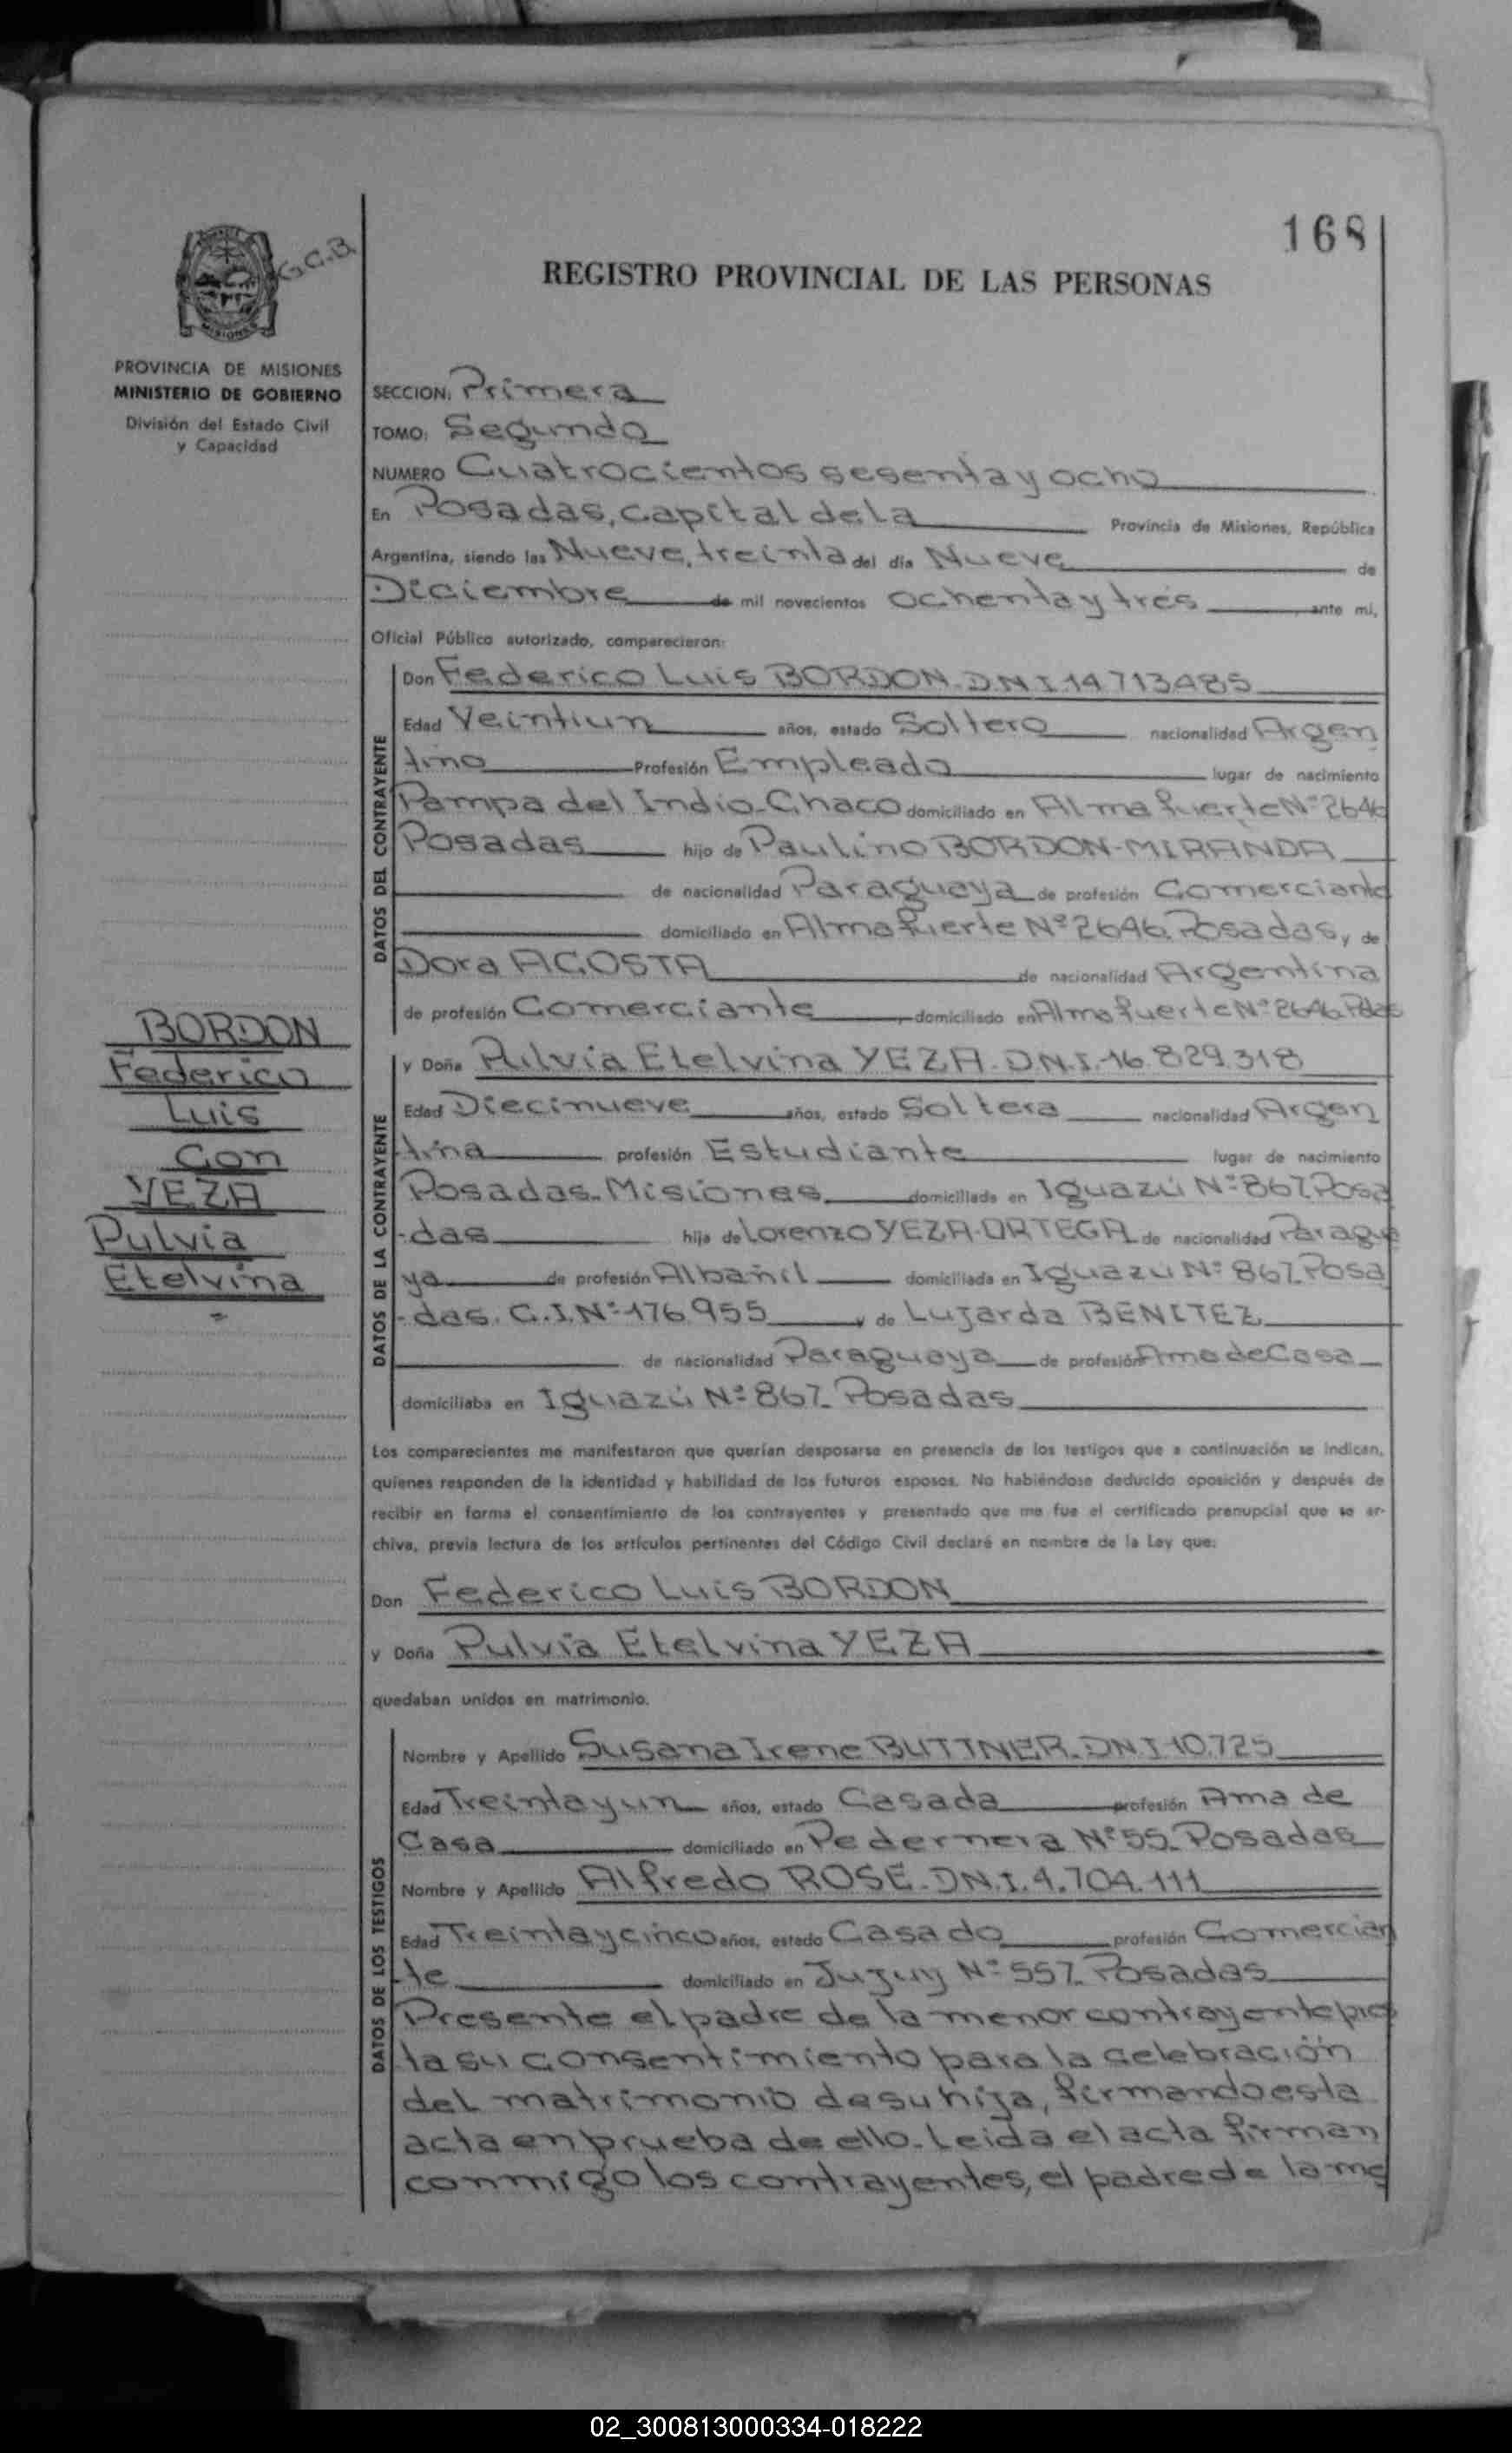 168
G.C.B.
MISIONES
REGISTRO PROVINCIAL DE LAS PERSONAS
PROVINCIA DE MISIONES
MINISTERIO DE GOBIERNO
División del Estado Civil
y Capacidad
SECCION: Primera
TOMO: Segundo
NUMERO Cuatrocientos sesenta y ocho
En Posadas, capital de la Provincia de Misiones, República
Argentina, siendo las Nueve, treinta del día Nueve de
Diciembre de mil novecientos ochenta y tres ante mi,
Oficial Público autorizado, comparecieron:
DATOS DEL CONTRAYENTE
Don Federico Luis BORDON-D.N.I.14713485
Edad Veintiun años, estado Soltero nacionalidad Argen
tino Profesión Empleado lugar de nacimiento
Pampa del Indio-Chaco domiciliado en Almafuerte Nº 2646
Posadas hijo de Paulino BORDON-MIRANDA
de nacionalidad Paraguaya de profesión Comerciante
domiciliado en Almafuerte Nº 2646. Posadas, y de
Dora ACOSTA de nacionalidad Argentina
de profesión Comerciante, domiciliado en Almafuerte Nº 2646. Pdas
BORDON
Federico
Luis
Con
YEZA
Pulvia
Etelvina
=
DATOS DE LA CONTRAYENTE
y Doña Pulvia Etelvina YEZA-D.N.I.16.829.318
Edad Diecinueve años, estado Soltera nacionalidad Argen
tina profesión Estudiante lugar de nacimiento
Posadas-Misiones domiciliada en Iguazú Nº 867. Posa
-das hija de Lorenzo YEZA-ORTEGA de nacionalidad Paragua
ya de profesión Albañil domiciliada en Iguazú Nº 867. Posa
-das. C.I.Nº 176.955 y de Lujarda BENITEZ
de nacionalidad Paraguaya de profesión Ama de Casa
domiciliaba en Iguazú Nº 867. Posadas
Los comparecientes me manifestaron que querían desposarse en presencia de los testigos que a continuación se indican,
quienes responden de la identidad y habilidad de los futuros esposos. No habiéndose deducido oposición y después de
recibir en forma el consentimiento de los contrayentes y presentado que me fue el certificado prenupcial que se ar-
chiva, previa lectura de los artículos pertinentes del Código Civil declaré en nombre de la Ley que:
Don Federico Luis BORDON
y Doña Pulvia Etelvina YEZA
quedaban unidos en matrimonio.
DATOS DE LOS TESTIGOS
Nombre y Apellido Susana Irene BUTTNER-DNI 10.725
Edad Treinta y un años, estado Casada profesión Ama de
Casa domiciliado en Pedernera Nº 55. Posadas
Nombre y Apellido Alfredo ROSE-D.N.I.4.704.111
Edad Treinta y cinco años, estado Casado profesión Comercian
te domiciliado en Jujuy Nº 557. Posadas
Presente el padre de la menor contrayente pres
ta su consentimiento para la celebración
del matrimonio de su hija, firmando esta
acta en prueba de ello. Leida el acta firman
conmigo los contrayentes, el padre de la me
02_300813000334-018222